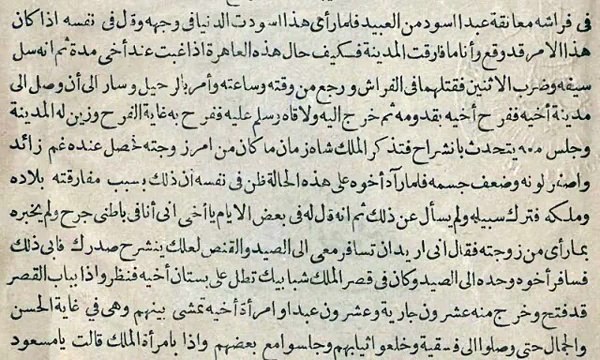 فى فراشه معانقة عبدا اسود من العبيد فلما رأى هذا اسودت الدنيا فى وجهه وقل فى نفسه اذا كان
هذا الامر قد وقع وأنا ما فارقت المدينة فكيف حال هذه العاهرة اذا غبت عند أخى مدة ثم انه سل
سيفه وضرب الاثنين فقتلهما فى الفراش ورجع من وقته وساعته وأمر بالرحيل وسار الى أن وصل الى
مدينة أخيه ففرح أخيه بقدومه ثم خرج اليه ولاقاه وسلم عليه ففرح به غاية الفرح وزين له المدينة
وجلس معه يتحدث بانشراح فتذكر الملك شاه زمان ما كان من امر زوجته فحصل عنده غم زائد
واصفر لونه وضعف جسمه فلما رآه أخوه على هذه الحالة ظن فى نفسه ان ذلك بسبب مفارقته بلاده
وملكه فترك سبيله ولم يسأل عن ذلك ثم انه قل له فى بعض الايام يا أخى انى أنا فى باطنى جرح ولم يخبره
بما رأى من زوجته فقال انى اريد ان تسافر معى الى الصيد والقنص لعلك ينشرح صدرك فابى ذلك
فسافر أخوه وحده الى الصيد وكان فى قصر الملك شبابيك تطل على بستان أخيه فنظر واذا بباب القصر
قد فتح وخرج منه عشرون جارية وعشرون عبدا وامرأة أخيه تمشى بينهم وهى فى غاية الحسن
والجمال حتى وصلوا الى فسقية وخلعوا ثيابهم وجلسوا مع بعضهم واذا بامرأة الملك قالت يا مسعود